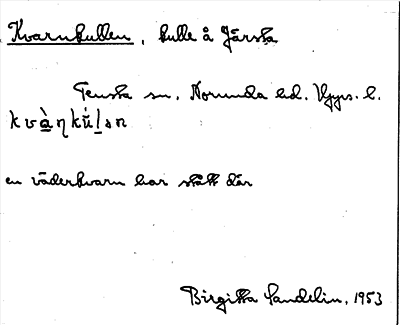 Kvarnkullen, kulle å Järsta
Tensta sn, Norunda hd. Upps. l.
kvàŋkúlən
en väderkvarn har stått där
Birgitta Sandelin, 1953